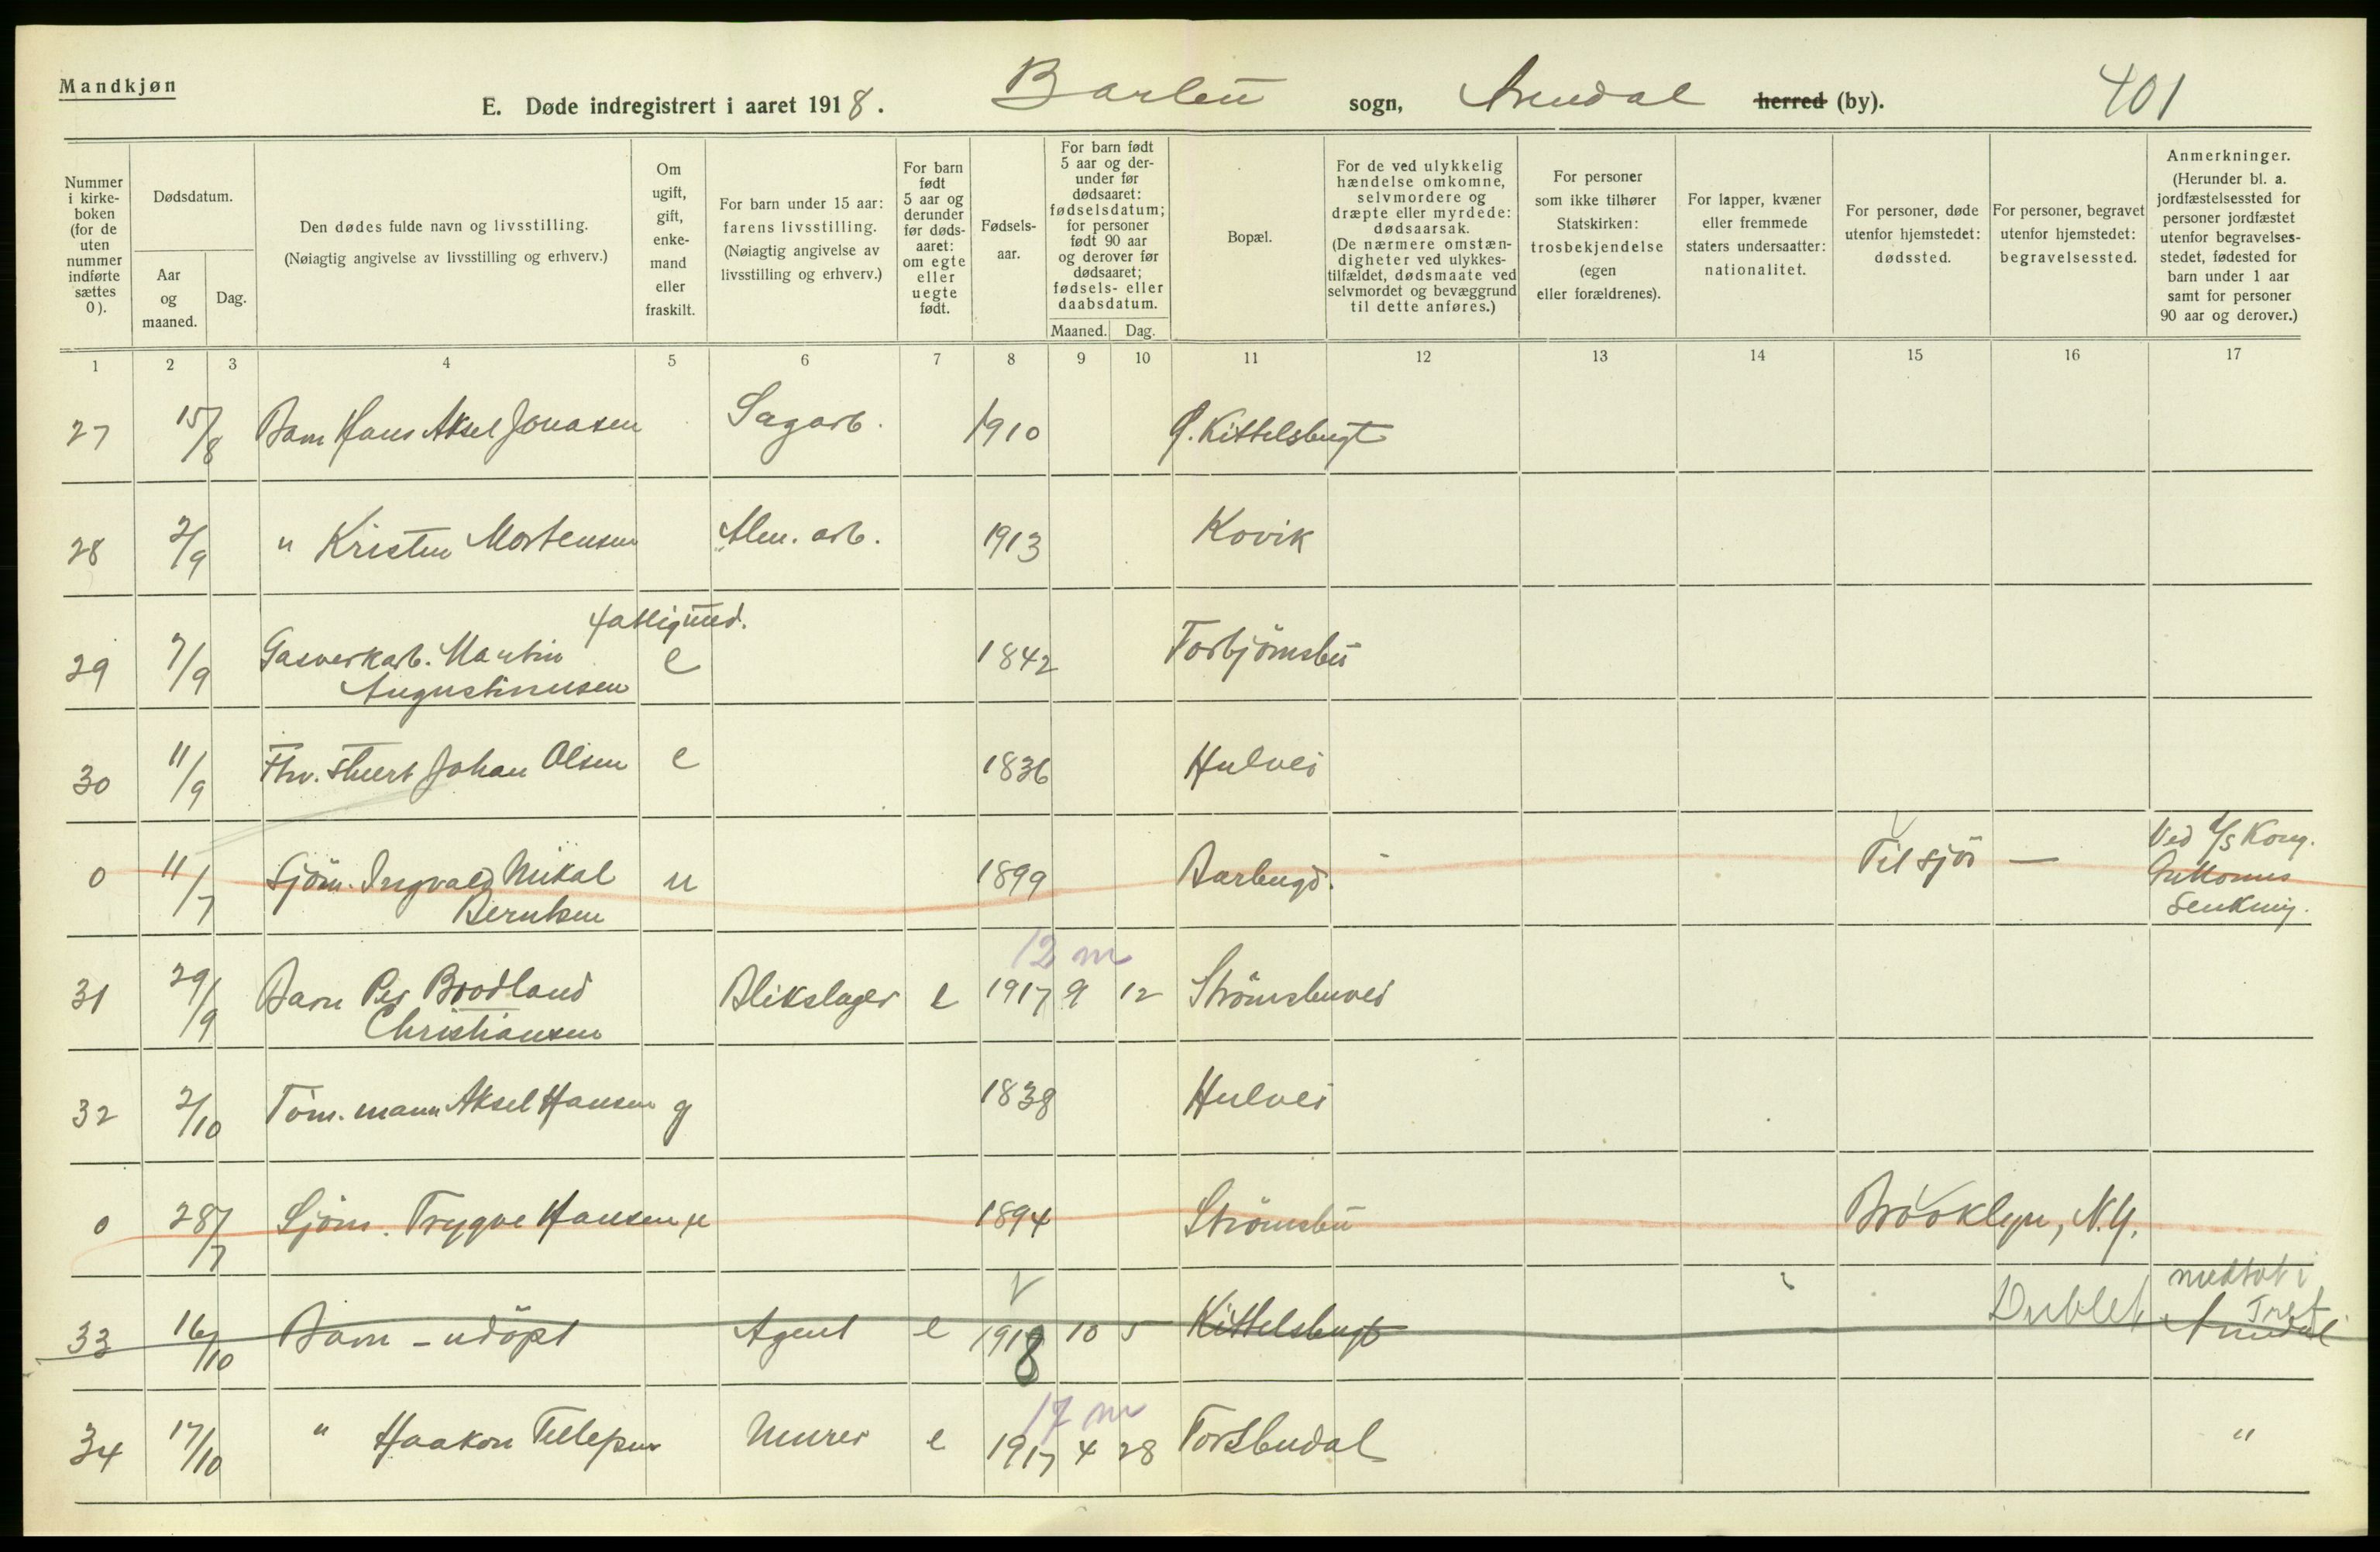 Mandkjøn
E. Døde indregistrert i aaret 1918. Barbu sogn, Arendal herred (by). 401
Nummer i kirke-boken (for de uten nummer indførte sættes 0).
Dødsdatum.
Aar og maaned.
Dag.
Den dødes fulde navn og livsstilling.
(Nøiagtig angivelse av livsstilling og erhverv.)
Om ugift, gift, enke-mand eller fraskilt.
For barn under 15 aar: farens livsstilling.
(Nøiagtig angivelse av livsstilling og erhverv.)
For barn født 5 aar og derunder før døds-aaret: om egte eller uegte født.
Fødsels-aar.
For barn født 5 aar og der-under før dødsaaret: fødselsdatum; for personer født 90 aar og derover før dødsaaret; fødsels- eller daabsdatum.
Maaned. Dag.
Bopæl.
For de ved ulykkelig hændelse omkomne, selvmordere og dræpte eller myrdede: dødsaarsak.
(De nærmere omstæn-digheter ved ulykkes-tilfældet, dødsmaate ved selvmordet og bevæggrund til dette anføres.)
For personer som ikke tilhører Statskirken: trosbekjendelse (egen eller forældrenes).
For lapper, kvæner eller fremmede staters undersaatter: nationalitet.
For personer, døde utenfor hjemstedet: dødssted.
For personer, begravet utenfor hjemstedet: begravelsessted.
Anmerkninger.
(Herunder bl. a. jordfæstelsessted for personer jordfæstet utenfor begravelses-stedet, fødested for barn under 1 aar samt for personer 90 aar og derover.)
1 2 3 4 5 6 7 8 9 10 11 12 13 14 15 16 17
27 15/8 Barn Hans Aksel Jonasen Sagarb. 1910 Ø. Kittelsbugt
28 2/9 " Kristen Mortensen Alm. arb. 1913 Kovik
fattigund.
29 7/9 Gasverkarb. Martin e 1842 Torbjörnsbu
Augustinusen
30 11/9 Fhv. Johan Olsen e 1836 Hulvei
0 11/7 Sjöm. Ingvald Mikal u 1899 Barbugd. Til sjös — Ved s/s Kong.
Berntsen Guttorms
Senkning.
12 m
31 29/9 Barn Per Brodland Blikslager e 1917 9 12 Strömsbuvei
Christiansen
32 2/10 Töm. mann Aksel Hansen g 1838 Hulvei
0 28/7 Sjöm. Trygve Hansen u 1894 Strömsbu Brooklyn, N.Y.
33 16/10 Barn - udöpt Agent e 1918 10 5 Kittelsbugt Dublet medtat i
Tref.
Arendal
17 m
34 17/10 " Haakon Tellefsen Murer e 1917 4 28 Torsbudal "